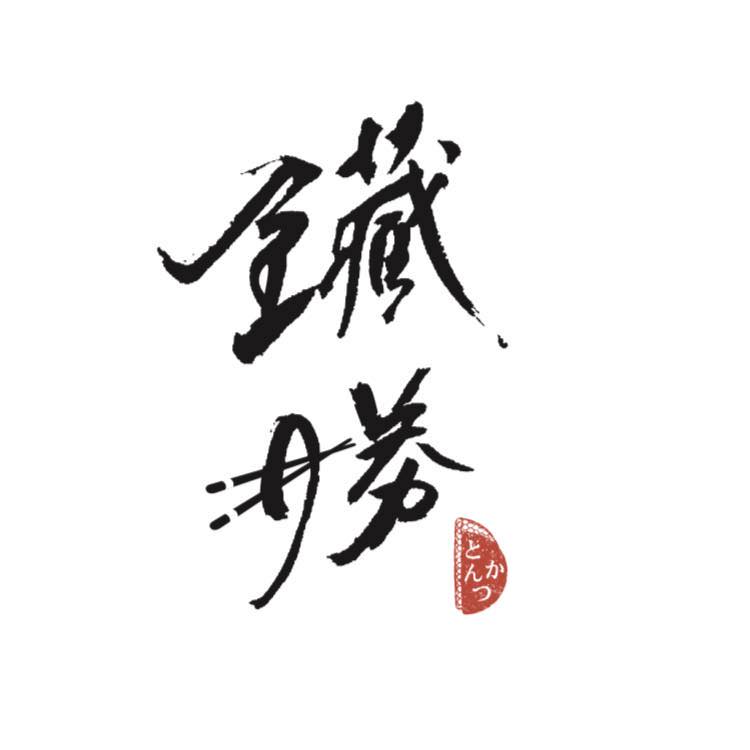 鑶
勝
とんかつ